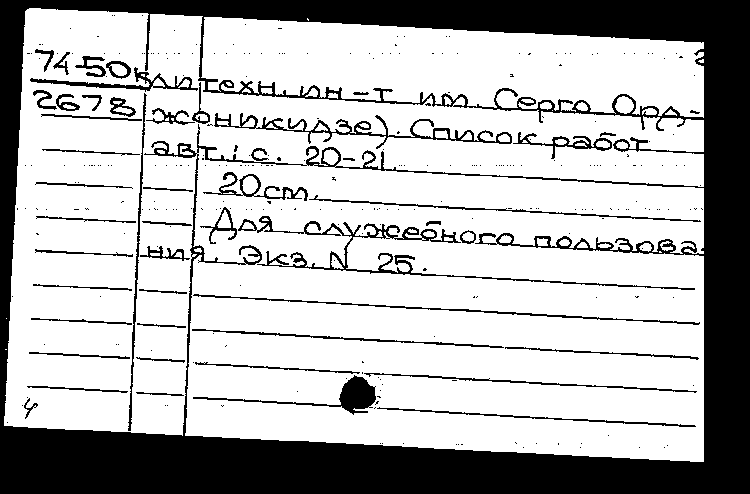 2
74-50к литехн. ин-т им. Серго Орд-
2678 жоникидзе). Список работ
авт.: с. 20-21.
20 см.
Для служебного пользова-
ния. Экз. N 25.
4